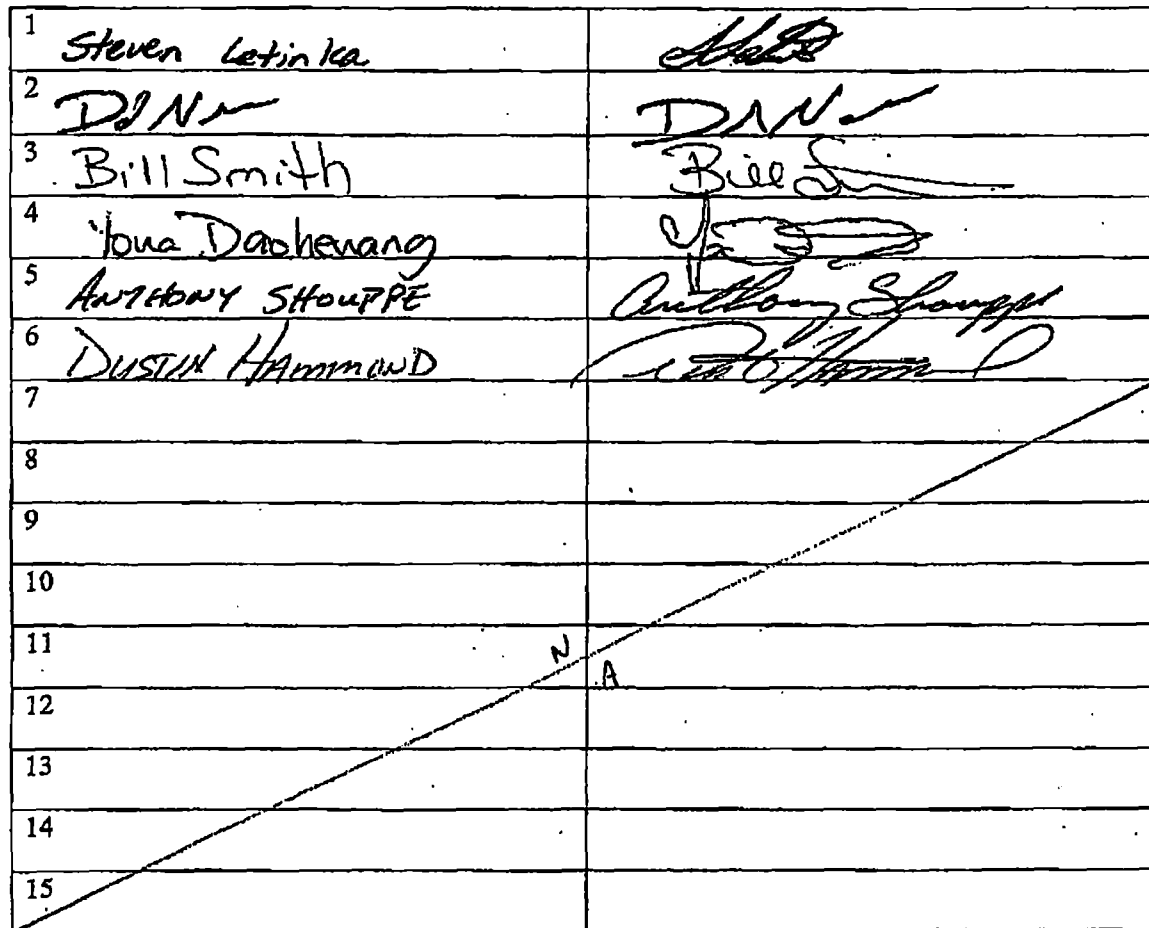 1 Steven Letinka
2
3 Bill Smith Bill
4 Daohevang
5 ANTHONY SHOUPPE Anthony Shoupp
6 DUSTIN HAMMOND
7
8
9
10
11 N A
12
13
14
15